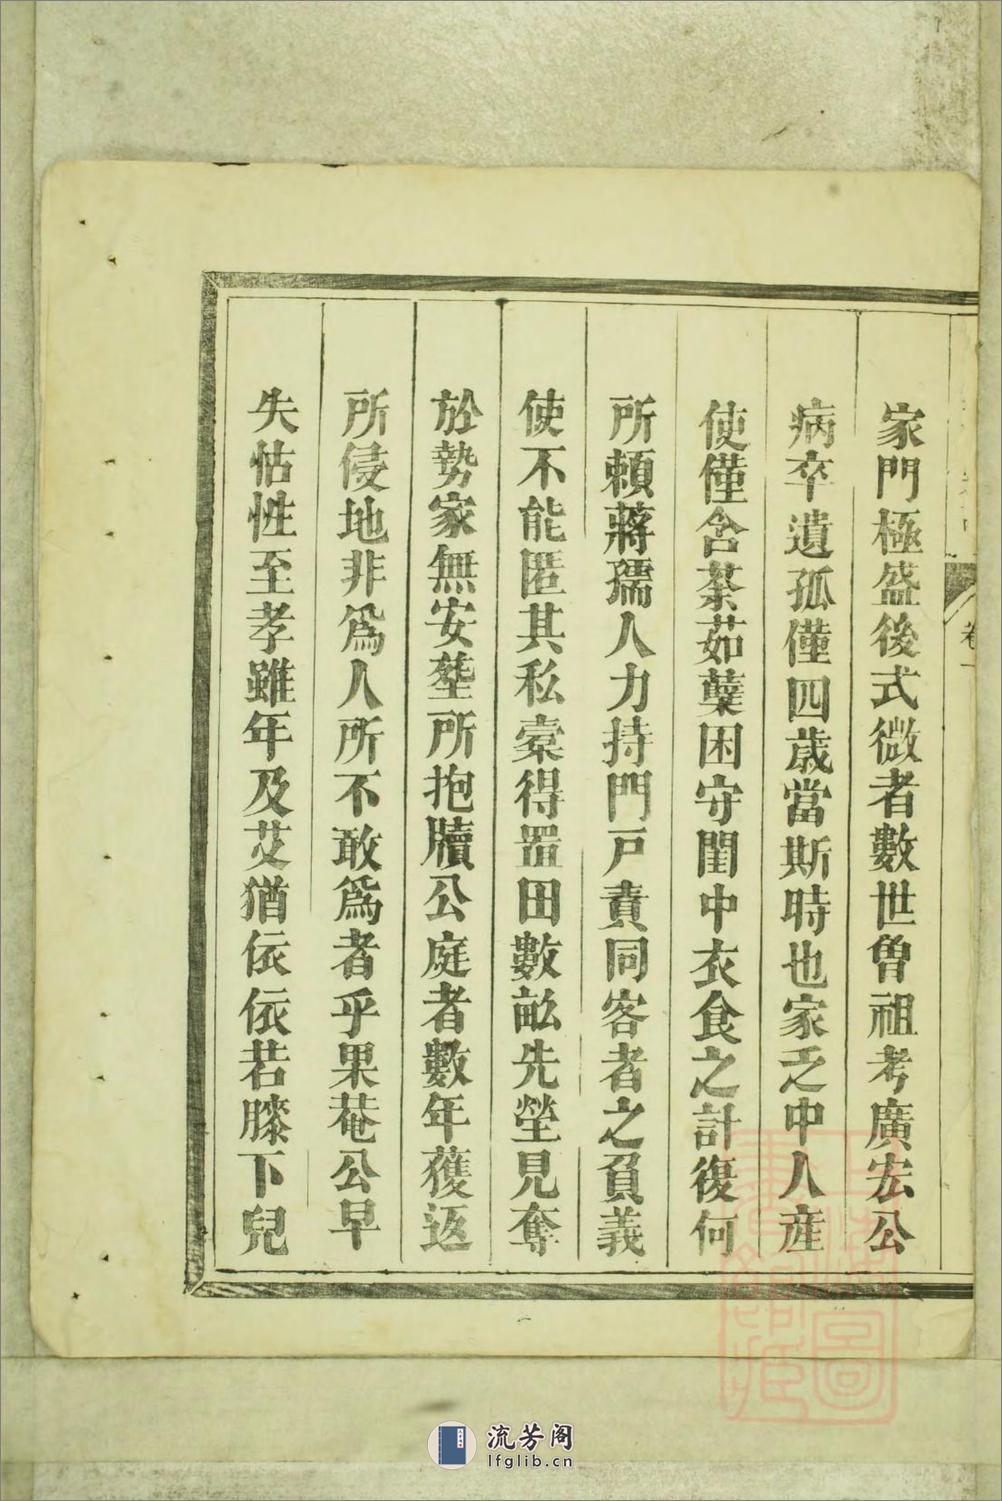 家門極盛後式微者數世曾祖考廣宏公
病卒遺孤僅四歲當斯時也家乏中人産
使僅含荼茹蘖困守閨中衣食之計復何
所賴蔣孺人力持門戸責同客者之負義
使不能匿其私橐得置田數畝先塋見奪
於勢家無安塟所抱牘公庭者數年獲返
所侵地非爲人所不敢爲者乎果菴公早
失怙性至孝雖年及艾猶依依若膝下兒
卷一
流芳阁
lfglib.cn